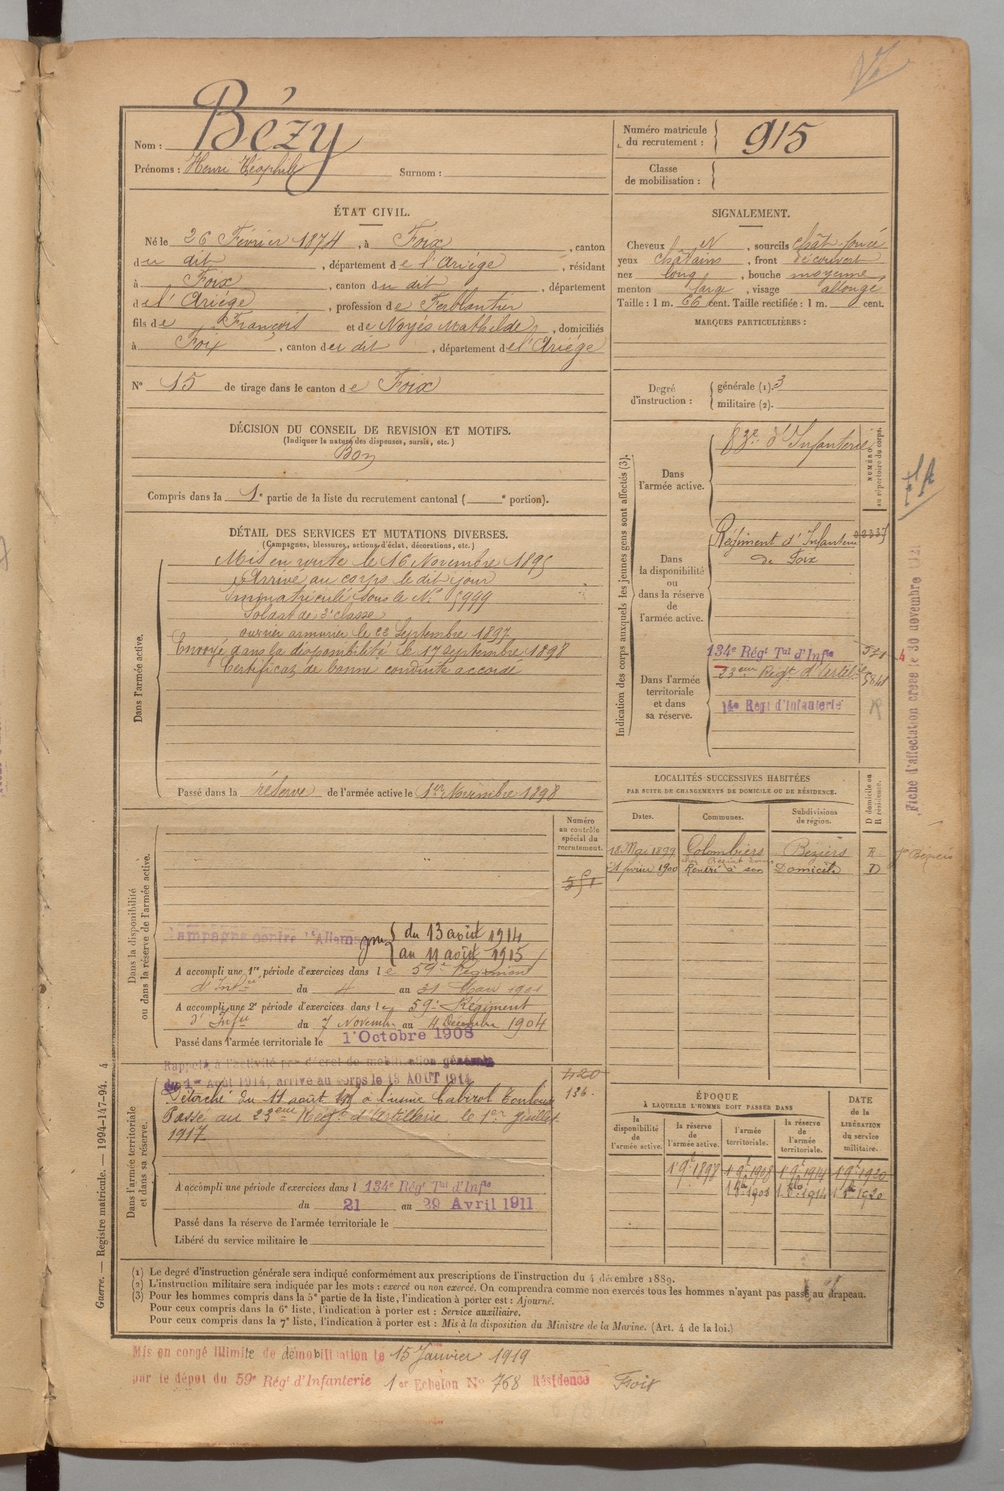 Nom : Bézy
Prénoms : Henri Théophile Surnom :
Numéro matricule du recrutement : 915
Classe de mobilisation :
ÉTAT CIVIL.
Né le 26 Février 1874, à Foix, canton
du dit, département de l'Ariège, résidant
à Foix, canton du dit, département
de l'Ariège, profession de Ferblantier
fils de François et de Noyès Mathilde, domiciliés
à Foix, canton du dit, département de l'Ariège
N° 15 de tirage dans le canton de Foix
SIGNALEMENT.
Cheveux N, sourcils chât foncé
yeux châtains, front découvert
nez long, bouche moyenne
menton large, visage allongé
Taille : 1 m. 66 cent. Taille rectifiée : 1 m. cent.
MARQUES PARTICULIÈRES :
Degré d'instruction : générale (1). 3
militaire (2).
DÉCISION DU CONSEIL DE REVISION ET MOTIFS.
(Indiquer la nature des dispenses, sursis, etc.)
Bon
Compris dans la 1e partie de la liste du recrutement cantonal ( e portion).
DÉTAIL DES SERVICES ET MUTATIONS DIVERSES.
(Campagnes, blessures, actions d'éclat, décorations, etc.)
Dans l'armée active.
Mis en route le 16 Novembre 1895
Arrivé au corps le dit jour
Immatriculé sous le N° 5999
Soldat de 2e classe
ouvrier armurier le 22 Septembre 1897
Envoyé dans la disponibilité le 17 septembre 1898
Certificat de bonne conduite accordé
Passé dans la réserve de l'armée active le 1er Novembre 1898
Indication des corps auxquels les jeunes gens sont affectés (3).
NUMÉRO au répertoire du corps.
Dans l'armée active.
83e d'Infanterie
Dans la disponibilité ou dans la réserve de l'armée active.
Régiment d'Infanterie
de Foix
Dans l'armée territoriale et dans sa réserve.
134e Régt Tal d'Infie 521
23eme Régt d'Artillie
14e Régt d'Infanterie R
Fiche d'affectation créée le 30 novembre
LOCALITÉS SUCCESSIVES HABITÉES
PAR SUITE DE CHANGEMENTS DE DOMICILE OU DE RÉSIDENCE.
Dates. Communes. Subdivisions de région. D domicile ou R résidence.
18 Mai 1899 Colombiers Béziers R
février 1900 Rentré à son Domicile D
Numéro au contrôle spécial du recrutement.
521
Dans la disponibilité ou dans la réserve de l'armée active.
Campagne contre l'Allemagne du 13 août 1914
au 11 août 1915
A accompli une 1re période d'exercices dans le 59e Régiment
d'Infie du 4 au 31 Mars 1901
A accompli une 2e période d'exercices dans le 59e Régiment
d'Infie du 7 Novembre au 4 Décembre 1904
Passé dans l'armée territoriale le 1er Octobre 1908
Dans l'armée territoriale et dans sa réserve.
Rappelé à l'activité par décret de mobilisation générale
du 1er Août 1914, arrivé au corps le 13 AOUT 1914
420
136.
Détaché du 11 août 1915 à l'usine Cabirol Toulouse
Passé au 23eme Régt d'Artillerie le 1er Juillet
1917.
A accompli une période d'exercices dans l 134e Régt Tal d'Infie
du 21 au 29 Avril 1911
Passé dans la réserve de l'armée territoriale le
Libéré du service militaire le
ÉPOQUE
À LAQUELLE L'HOMME DOIT PASSER DANS
la disponibilité de l'armée active. la réserve de l'armée active. l'armée territoriale. la réserve de l'armée territoriale.
DATE de la LIBÉRATION du service militaire.
1 9e 1898 1 9e 1908 1 9e 1914 1 9e 1920
1908 1914 1920
(1) Le degré d'instruction générale sera indiqué conformément aux prescriptions de l'instruction du 4 décembre 1889.
(2) L'instruction militaire sera indiquée par les mots : exercé ou non exercé. On comprendra comme non exercés tous les hommes n'ayant pas passé au drapeau.
(3) Pour les hommes compris dans la 5e partie de la liste, l'indication à porter est : Ajourné.
Pour ceux compris dans la 6e liste, l'indication à porter est : Service auxiliaire.
Pour ceux compris dans la 7e liste, l'indication à porter est : Mis à la disposition du Ministre de la Marine. (Art. 4 de la loi.)
Guerre. — Registre matricule. — 1994-147-94. 4
Mis en congé illimité de démobilisation le 15 Janvier 1919
par le dépôt du 59e Régt d'Infanterie 1er Echelon N° 768 Résidence Foix